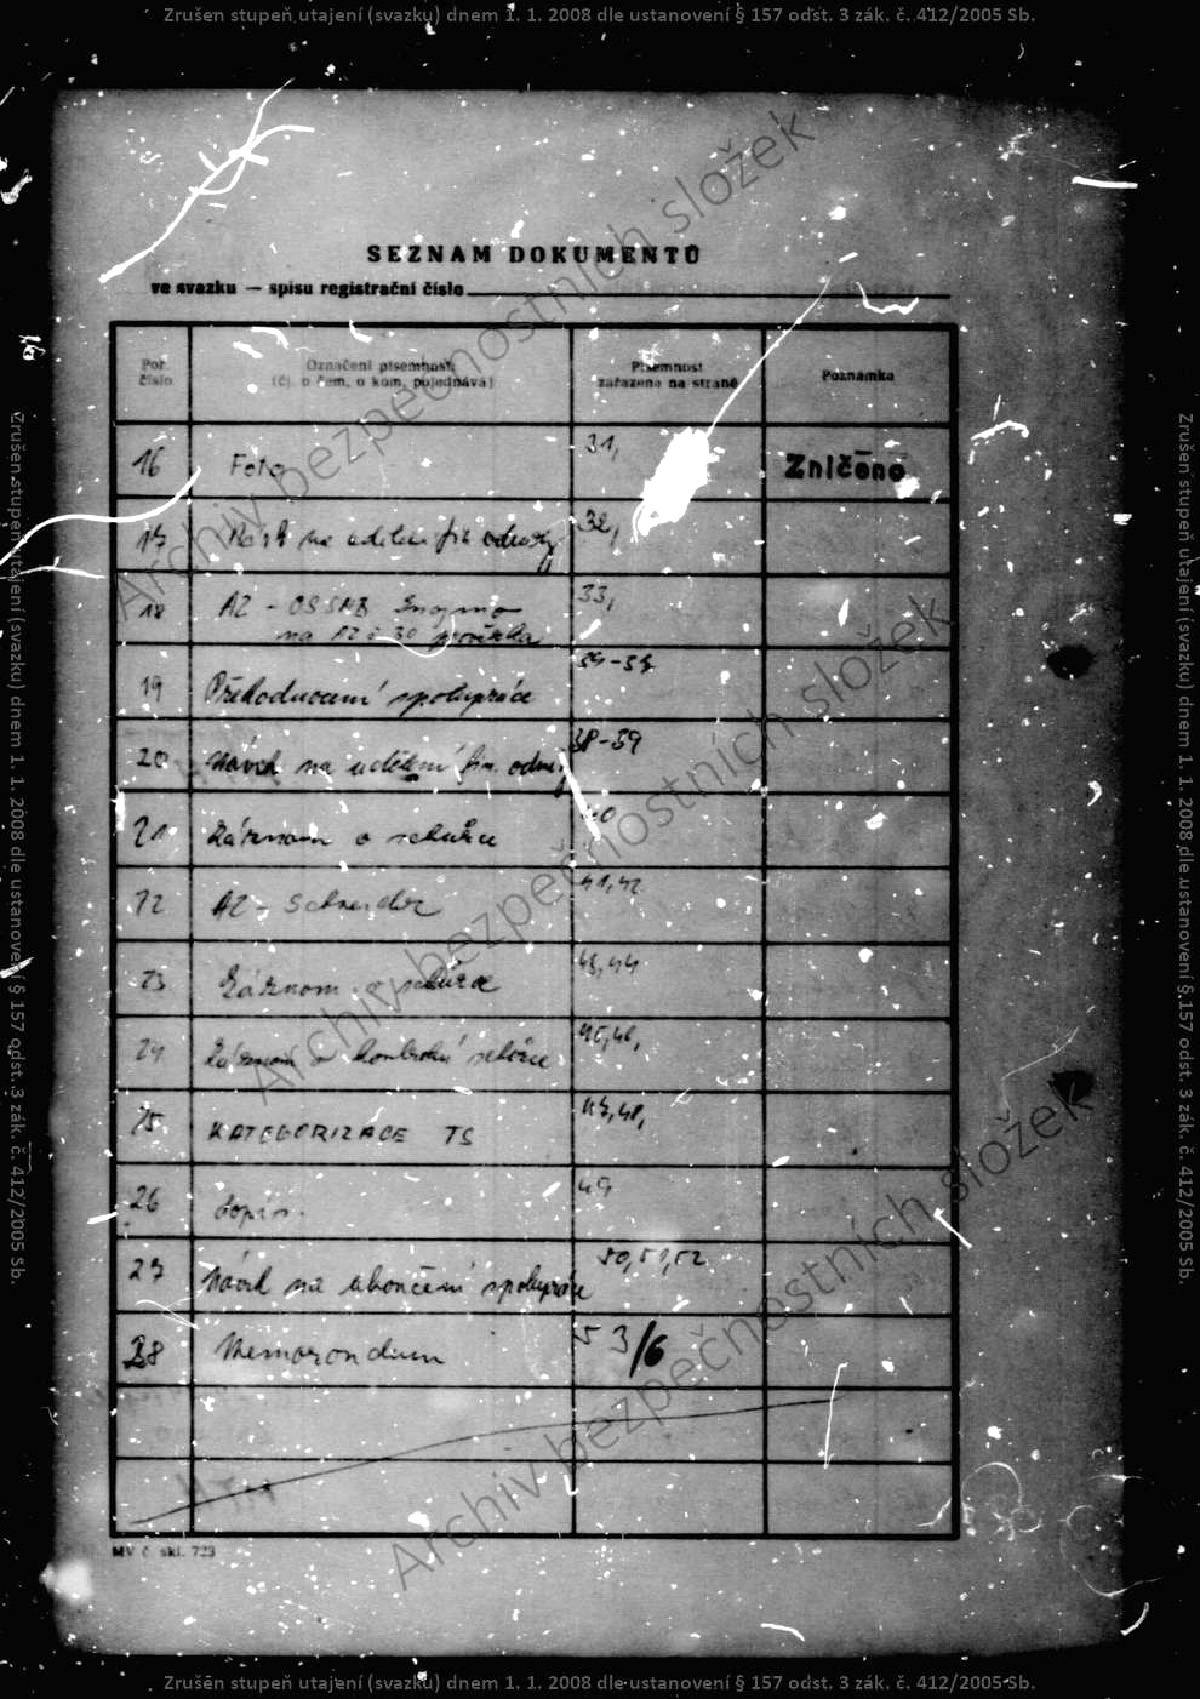 Zrušen stupeň utajení (svazku) dnem 1. 1. 2008 dle ustanovení § 157 odst. 3 zák. č. 412/2005 Sb.
SEZNAM DOKUMENTŮ
ve svazku — spisu registrační číslo
Poř. číslo
Označení písemnosti
(čj. o čem, o kom, pojednává)
Písemnost
zařazena na straně
Poznámka
16 Foto 31, Zničeno
17 na udělení fin odměny 32,
18 AZ - Znojmo 33,
na
19 Přehodnocení spolupráce
20 Návrh na udělení fin. odměny 38-39
21 Záznam o schůzce 40
22 AZ - Schneider 41,42
23 Záznam o schůzce 43,44
24 Záznam o kontrolní schůzce 45,46,
25 KATEGORIZACE TS 47,48,
26 Dopis 49
27 Návrh na ukončení spolupráce 50,51,52
28 Memorandum 53/6
MV č. skl. 723
Archiv bezpečnostních složek
Archiv bezpečnostních složek
Archiv bezpečnostních složek
Zrušen stupeň utajení (svazku) dnem 1. 1. 2008 dle ustanovení § 157 odst. 3 zák. č. 412/2005 Sb.
Zrušen stupeň utajení (svazku) dnem 1. 1. 2008 dle ustanovení § 157 odst. 3 zák. č. 412/2005 Sb.
Zrušen stupeň utajení (svazku) dnem 1. 1. 2008 dle ustanovení § 157 odst. 3 zák. č. 412/2005 Sb.